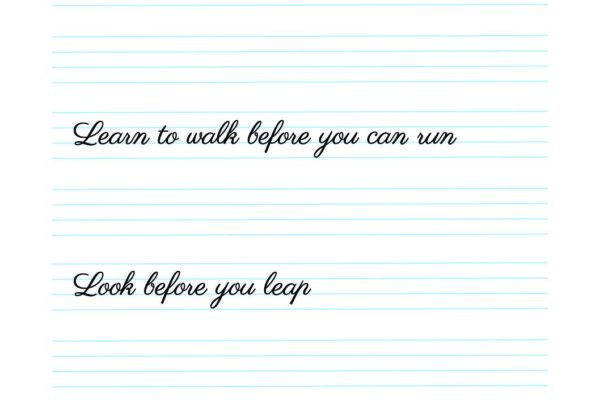 Learn to walk before you can run
Look before you leap